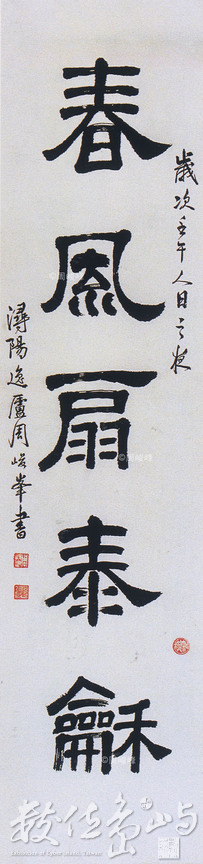 歲次壬午人日之夜
春風扇泰龢
潯陽逸廬周峻峯書
數位島嶼